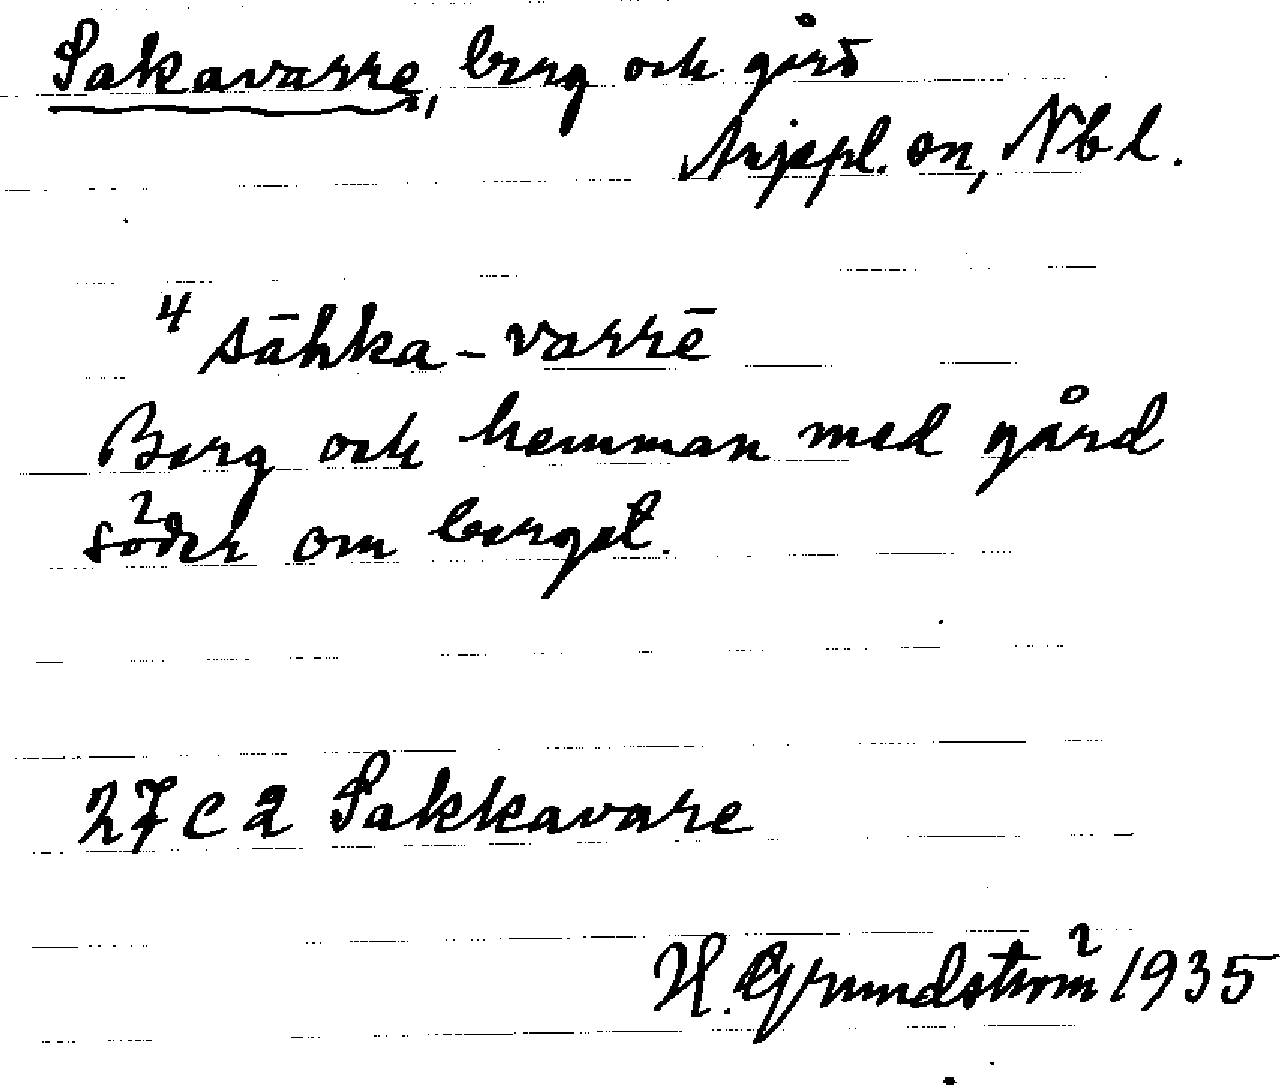 Sakavarre, berg och gård
Arjepl. sn, Nbl.
4 sāhka-varrē
Berg och hemman med gård
söder om berget.
27 c 2 Sakkavare
H. Grundström 1935